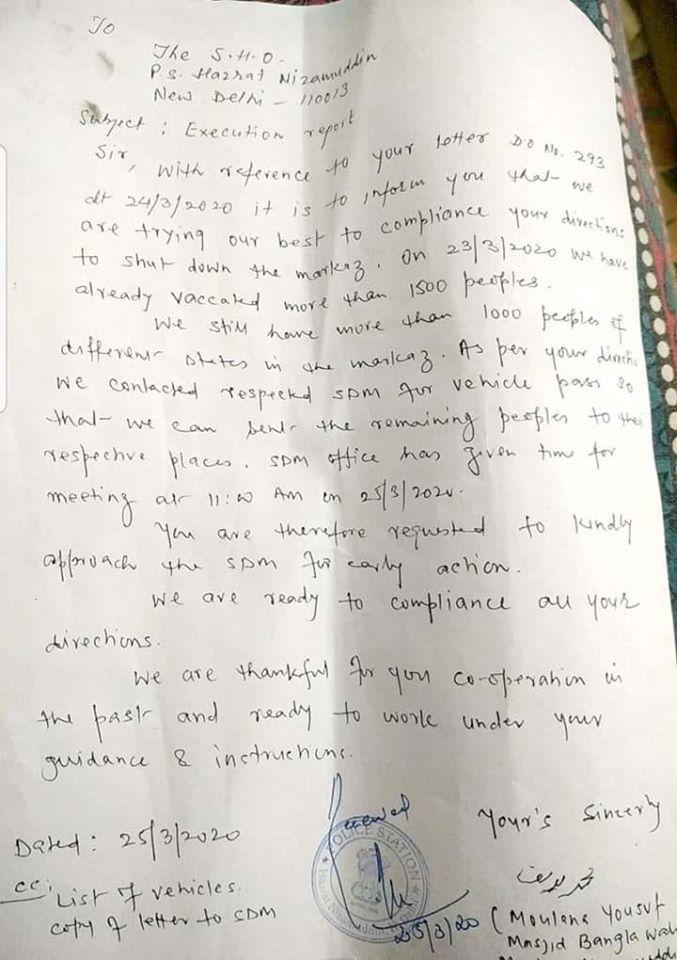 To
The S.H.O.
P.S. Hazrat Nizamuddin
New Delhi - 110013
Subject : Execution report
Sir, With reference to your letter D.O No. 293
dt 24/3/2020 it is to inform you that we
are trying our best to compliance your directions
to shut down the markaz. On 23/3/2020 we have
already vaccated more than 1500 peoples.
We still have more than 1000 peoples of
different states in the markaz. As per your directi
we contacted respected SDM for vehicle pass so
that we can sent the remaining peoples to thei
respective places. SDM office has given time for
meeting at 11:00 AM on 25/3/2020.
You are therefore requested to kindly
approach the SDM for early action.
We are ready to compliance all your
directions.
We are thankful for you co-operation in
the past and ready to work under your
guidance & instructions.
Received
Dated : 25/3/2020
Your's Sincerly
POLICE STATION
Hazrat Nizamuddin
cc: List of vehicles.
copy of letter to SDM
محمد يوسف
25/3/20
(Moulana Yousuf
Masjid Bangla Wali